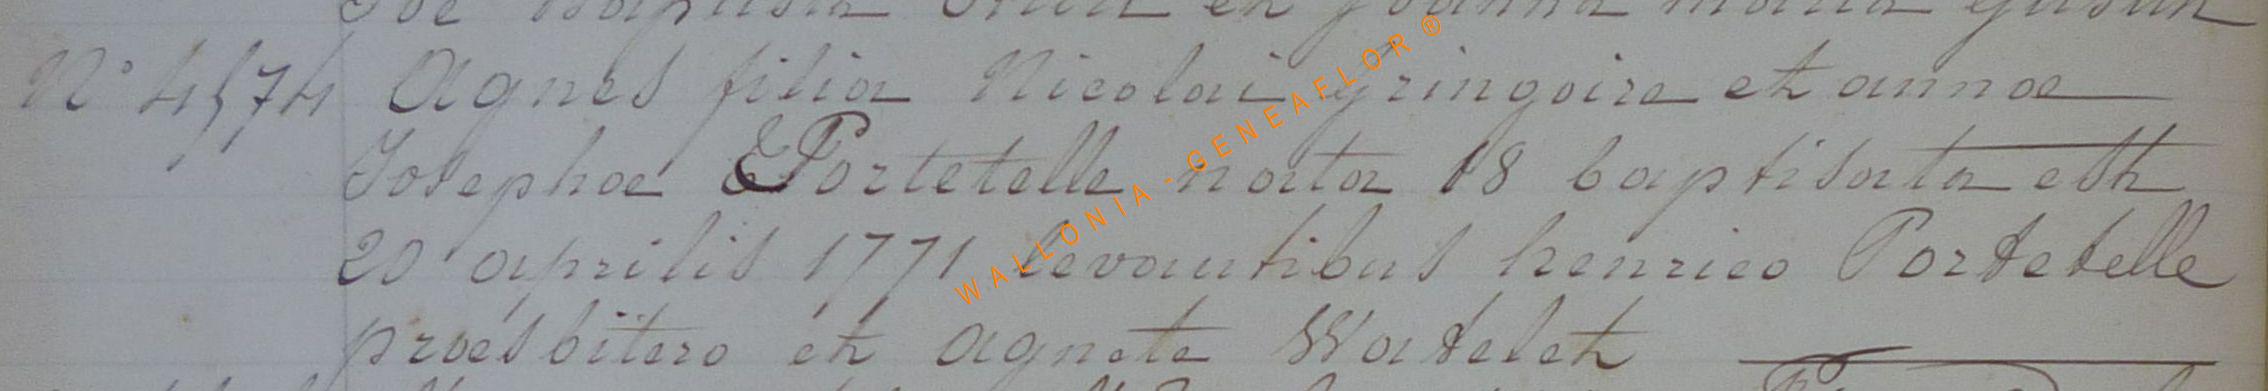 Joe Baptista et Joanna maria
N° 4574 Agnes filia Nicolai Gringoire et annae
Josephae Portetelle nata 18 baptisata est
20 aprilis 1771 levantibus henrico Portetelle
praesbitero et agnete Watelet
WALLONIA - GENEAFLOR ®